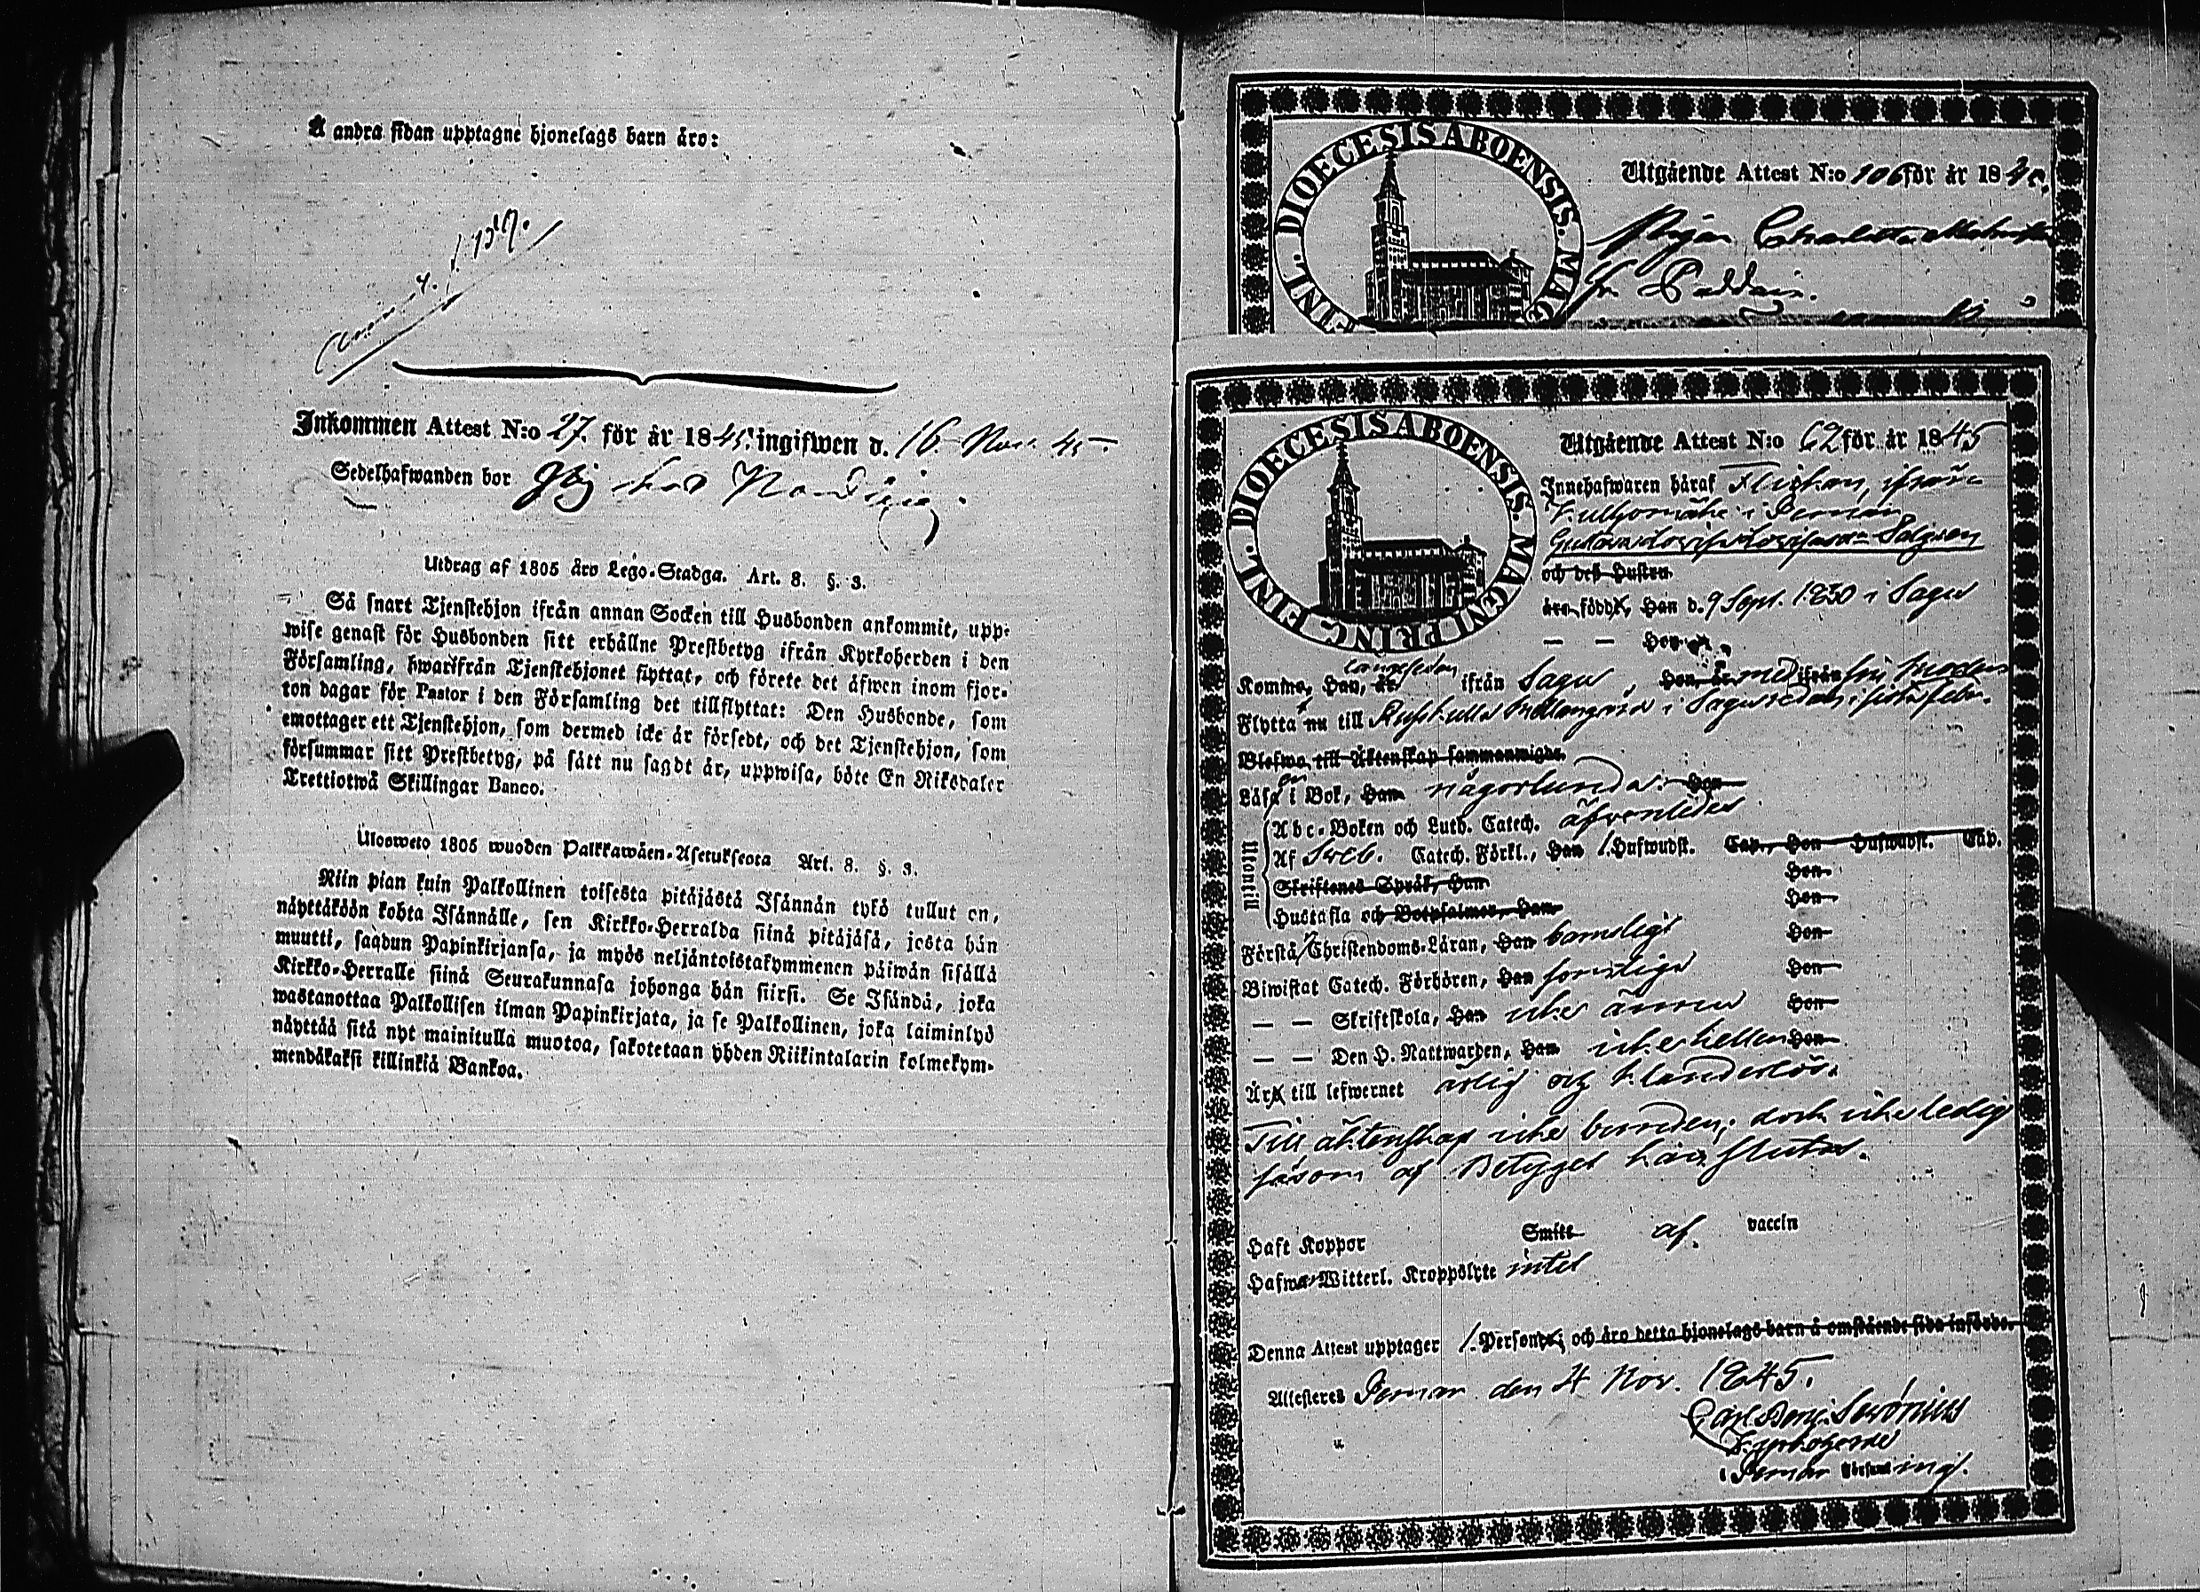 Å andra sidan upptagne hjonelags barn äro:
Inkommen Attest N:o 27. för år 1845. ingifwen d. 16. Nov. 45
Sedelhafwanden bor
Utdrag af 1805 åro Lego-Stadga. Art. 8. §. 3.
Så snart Tjenstehjon ifrån annan Socken till Husbonden ankommit, upp-
wise genast för Husbonden sitt erhållne Prestbetyg ifrån Kyrkoherden i den
Församling, hwarifrån Tjenstehjonet flyttat, och förete det äfwen inom fjor-
ton dagar för Pastor i den Församling det tillflyttat: Den Husbonde, som
emottager ett Tjenstehjon, som dermed icke är försedt, och det Tjenstehjon, som
försummar sitt Prestbetyg, på sätt nu sagdt är, uppwisa, böte En Riksdaler
Trettiotwå Skillingar Banco.
Uloosweto 1805 wuoden Palkkawäen-Asetuksesta Art. 8. §. 3.
Niin pian kuin Palkollinen toisesta pitäjästä Isännän tykö tullut on,
näyttäköön kohta Isännälle, sen Kirkko-Herralda siinä pitäjäsä, josta hän
muutti, saadun Papinkirjansa, ja myös neljäntoistakymmenen päiwän sisällä
Kirkko-Herralle siinä Seurakunnasa johonga hän siirsi. Se Isändä, joka
wastanottaa Palkollisen ilman Papinkirjata, ja se Palkollinen, joka laiminlyö
näyttää sitä nyt mainitulla muotoa, sakotetaan yhden Riikintalarin kolmekym-
mendäkaksi killinkiä Bankoa.
DIOECESIS ABOENSIS. MAG
FINL.
Utgående Attest N:o 106 för år 184
Pigan Charlotta
DIOECESIS ABOENSIS. MAGNI PRINC. FINL.
Utgående Attest N:o 62 för år 1845
Innehafwaren häraf Flickan, ifrån
i Pemar,
Gustava Lovisa
och dess Hustru
äro födde, Han d. 9 Sept. 1830 i Sagu
— — Hon
Komne, Han, är ifrån Sagu Hon är med ifrån sin moder
Flytta nu till i Sagu redan i sistl. febr.
Blefwo till Äktenskap sammanwigde.
Läsa i Bok, Han någorlunda. Hon
Utontill
Abc-Boken och Luth. Catech. äfvenledes
Af Sveb. Catech. Förkl., Han 1. Hufwudst. Cap., Hon Hufwudst. Cap.
Skriftenes Språk, Han Hon
Hustafla och Botpsalmer, Han Hon
Förstå Christendoms-Läran, Han barnsligt Hon
Biwistat Catech. Förhören, Han Hon
— — Skriftskola, Han icke ännu Hon
— — Den H. Nattwarden, Han icke heller Hon
Är till lefwernet ärlig och klanderlös.
Till äktenskap icke bunden; dock icke ledig
såsom af Betyget kan slutas.
Haft Koppor Smitt af vaccin
Hafwer Witterl. Kroppslyte intet
Denna Attest upptager 1. Person, och äro detta hjonelags barn å omstående sida införde.
Attesteres Pemar den 4 Nov. 1845.
Carl Benj.
Kyrkoherde
i Pemar Församling.